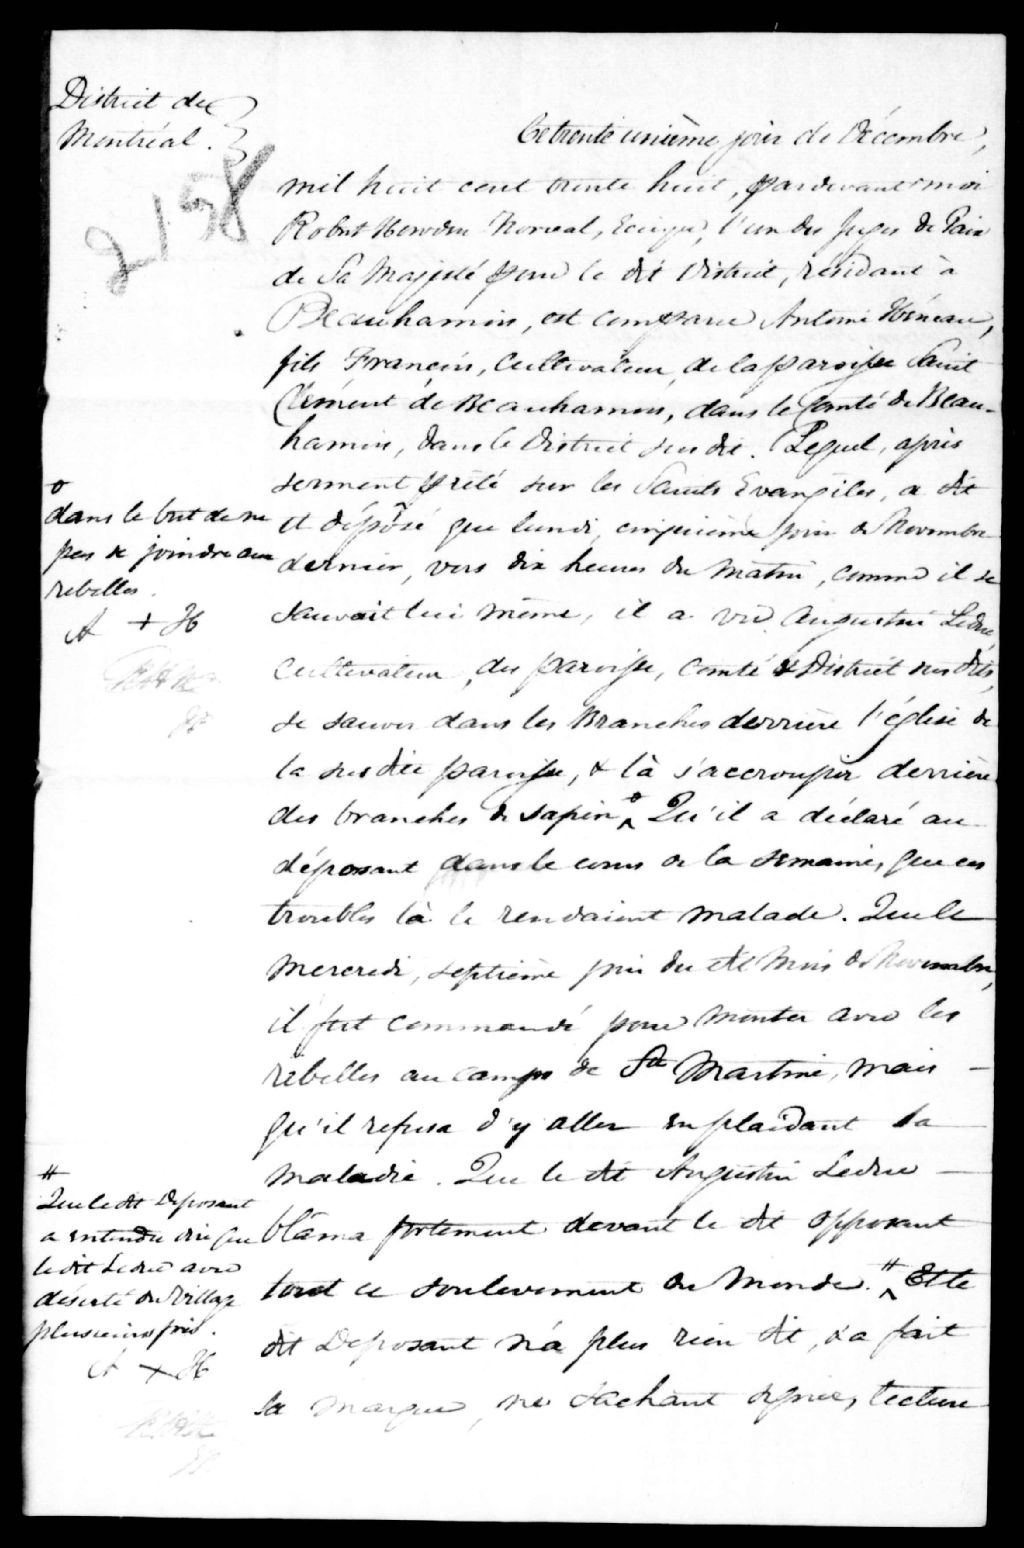 District de
Montréal.
2158
Ce trente unième jour de Décembre,
mil huit cent trente huit, pardevant moi
Robert Howden Norval, Ecuyer, l'un des Juges de Paix
de Sa Majesté pour le dit District, résidant à
Beauharnois, est comparu Antoine Héneau,
fils François, Cultivateur, de la paroisse Saint
Clément de Beauharnois, dans le Comté de Beau-
harnois, dans le District susdit. Lequel, après
serment prêté sur les Saints Evangiles, a dit
et déposé que lundi, cinquième jour de Novembre
dernier, vers dix heures du matin, comme il se
sauvait lui même, il a vu Augustin Leduc
Cultivateur, des paroisse, Comté & District susdits,
se sauver dans les Branches derrière l'église de
la susdite paroisse, & là s'accroupir derrière
des branches de sapin. Qu'il a déclaré au
déposant dans le cours de la semaine, que ces
troubles là le rendaient malade. Que le
Mercredi, septième jour du dit Mois de Novembre,
il fut commandé pour monter avec les
rebelles au camp de Ste Martine, mais
qu'il refusa d'y aller en plaidant sa
maladie. Que le dit Augustin Leduc
blâma fortement devant le dit opposant
tout ce soulevement du Monde. # Et le
dit Deposant n'a plus rien dit, & a fait
sa marque, ne sachant signer, lecture
dans le but de ne
pas se joindre aux
rebelles.
A + H
#
Que le dit Deposant
a entendu dire que
le dit Leduc avait
déserté du Village
plusieurs fois.
A + H